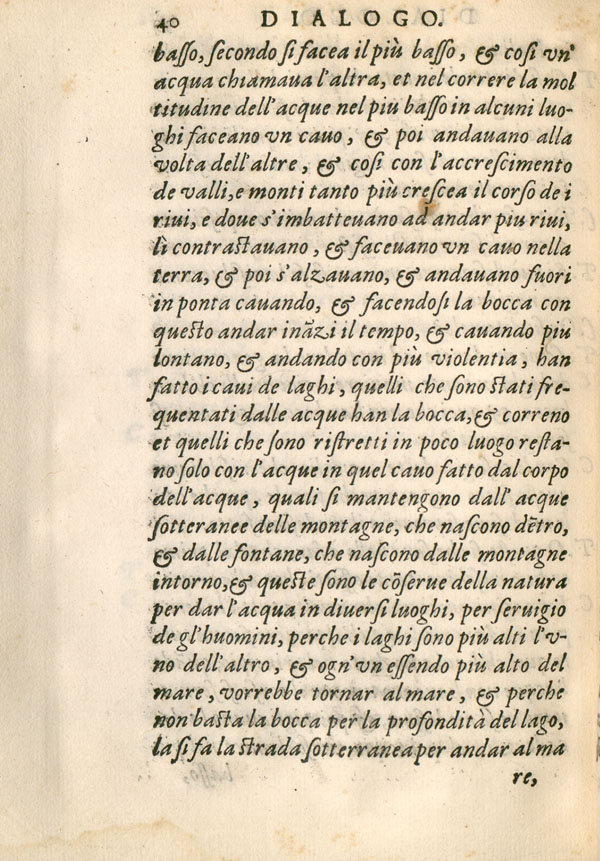 40 DIALOGO.
basso, secondo si facea il più basso, & cosi vn'
acqua chiamaua l'altra, et nel correre la mol
titudine dell'acque nel più basso in alcuni luo-
ghi faceano vn cauo, & poi andauano alla
volta dell'altre, & cosi con l'accrescimento
de valli, e monti tanto più crescea il corso de i
riui, e doue s'imbatteuano ad andar piu riui,
lì contrastauano, & faceuano vn cauo nella
terra, & poi s'alzauano, & andauano fuori
in ponta cauando, & facendosi la bocca con
questo andar inãzi il tempo, & cauando più
lontano, & andando con più violentia, han
fatto i caui de laghi, quelli che sono stati fre-
quentati dalle acque han la bocca, & correno
et quelli che sono ristretti in poco luogo resta-
no solo con l'acque in quel cauo fatto dal corpo
dell'acque, quali si mantengono dall'acque
sotteranee delle montagne, che nascono dẽtro,
& dalle fontane, che nascono dalle montagne
intorno, & queste sono le cõserue della natura
per dar l'acqua in diuersi luoghi, per seruigio
de gl'huomini, perche i laghi sono più alti l'v-
no dell'altro, & ogn'vn essendo più alto del
mare, vorrebbe tornar al mare, & perche
non basta la bocca per la profondità del lago,
la si fa la strada sotterranea per andar al ma
re,